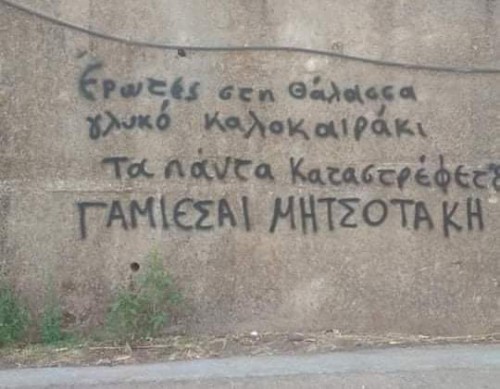 Έρωτές στη θάλασσα
γλυκό καλοκαιράκι
Τα πάντα καταστρέφετε
ΓΑΜΙΕΣΑΙ ΜΗΤΣΟΤΑΚΗ